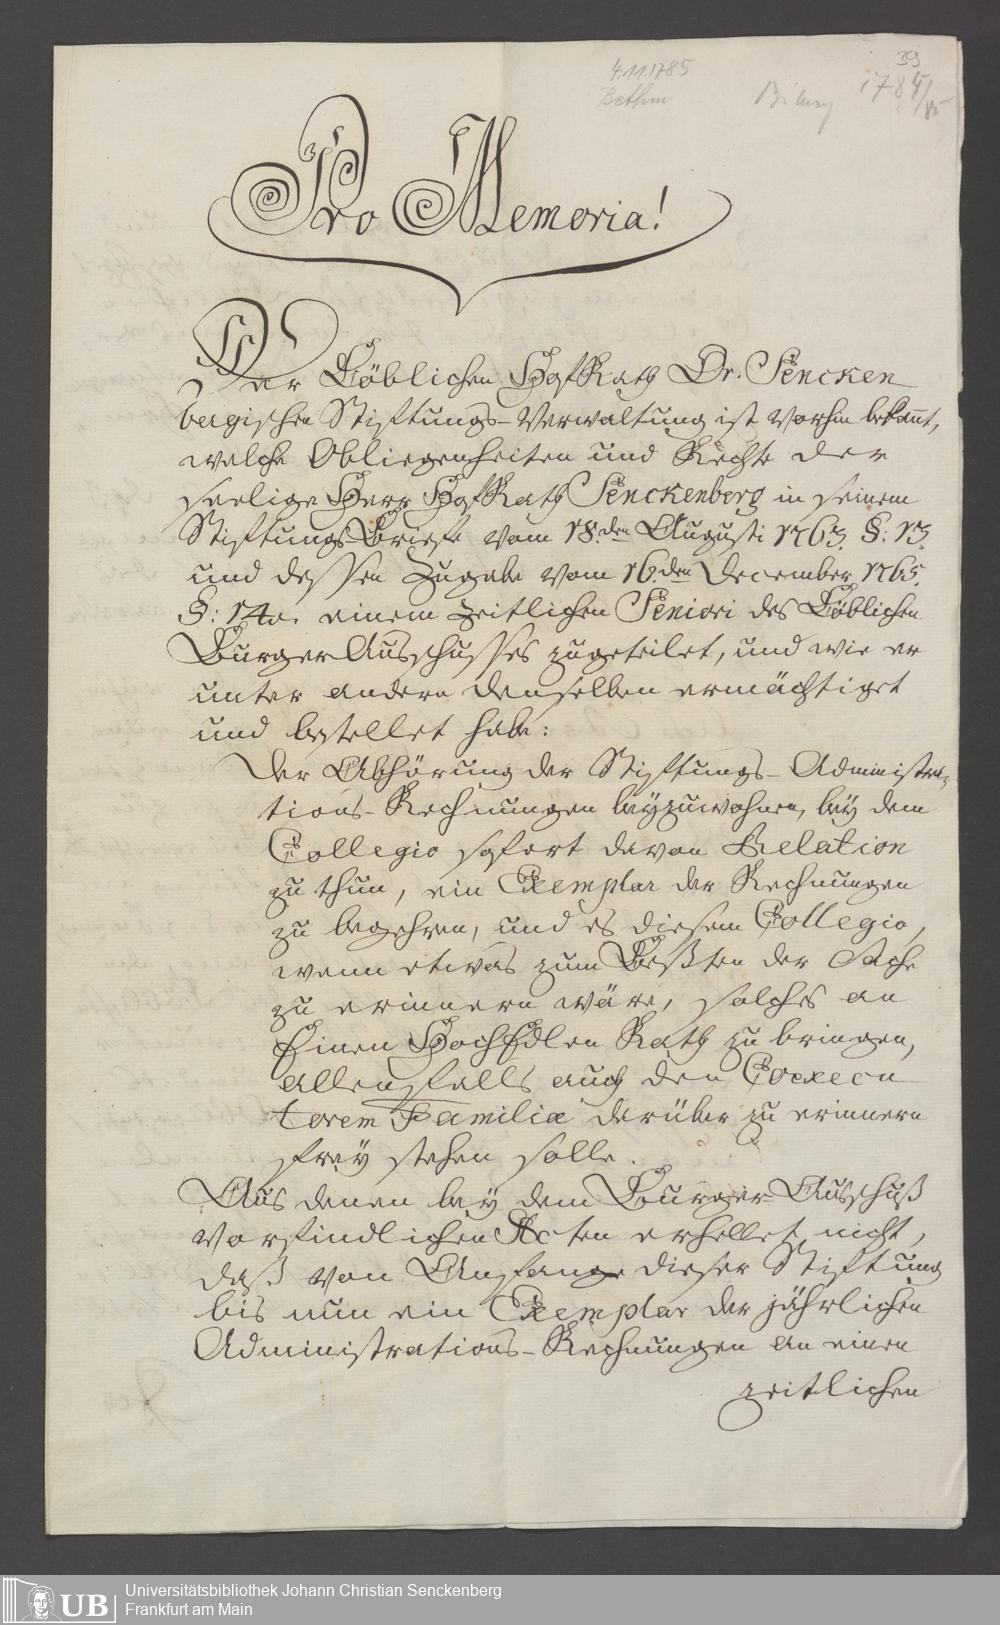 39
4.11.1785
Bethm
1784/85
Pro Memoria!
Der Löblichen HofRath Dr. Sencken
bergischen Stiftungs-Verwaltung ist vorhin bekant,
welche Obliegenheiten und Rechte der
seelige Herr HofRath Senckenberg in seinem
StiftungsBriefe vom 18.den Augusti 1763. §: 13.
und dessen Zugabe vom 16.den December 1765.
§: 14. einem zeitlichen Seniori des Löblichen
BurgerAusschusses zugeteilet, und wie er
unter andern denselben ermächtiget
und bestellet habe:
Der Abhörung der Stiftungs-Administra-
tions-Rechnungen beyzuwohnen, bey dem
Collegio sofort davon Relation
zu thun, ein Exemplar der Rechnungen
zu begehren, und es diesem Collegio,
wenn etwas zum Beßten der Sache
zu erinnern wäre, solches an
Einen HochEdlen Rath zu bringen,
allenfalls auch den
torem Familiæ darüber zu erinnern
frey stehen solle.
Aus denen bey dem Burger-Ausschuß
vorfindlichen Acten erhellet nicht,
daß von Anfange dieser Stiftung
bis nun ein Exemplar der jährlichen
Administrations-Rechnungen an einen
zeitlichen
UB
Universitätsbibliothek Johann Christian Senckenberg
Frankfurt am Main